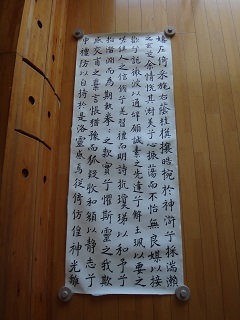 嬉左倚采旄右蔭桂旗攘皓腕於神滸兮採湍瀨
之玄芝余情悅其淑美兮心振蕩而不怡無良媒以接
歡兮託微波以通辭願誠素之先達兮解玉珮以要之
嗟佳人之信脩兮羌習禮而明詩抗瓊珶以和予兮
指潛淵而為期執眷眷之款實兮懼斯靈之我欺
感交甫之棄言兮悵猶豫而狐疑收和顏以靜志兮
申禮防以自持於是洛靈感焉徙倚彷徨神光離